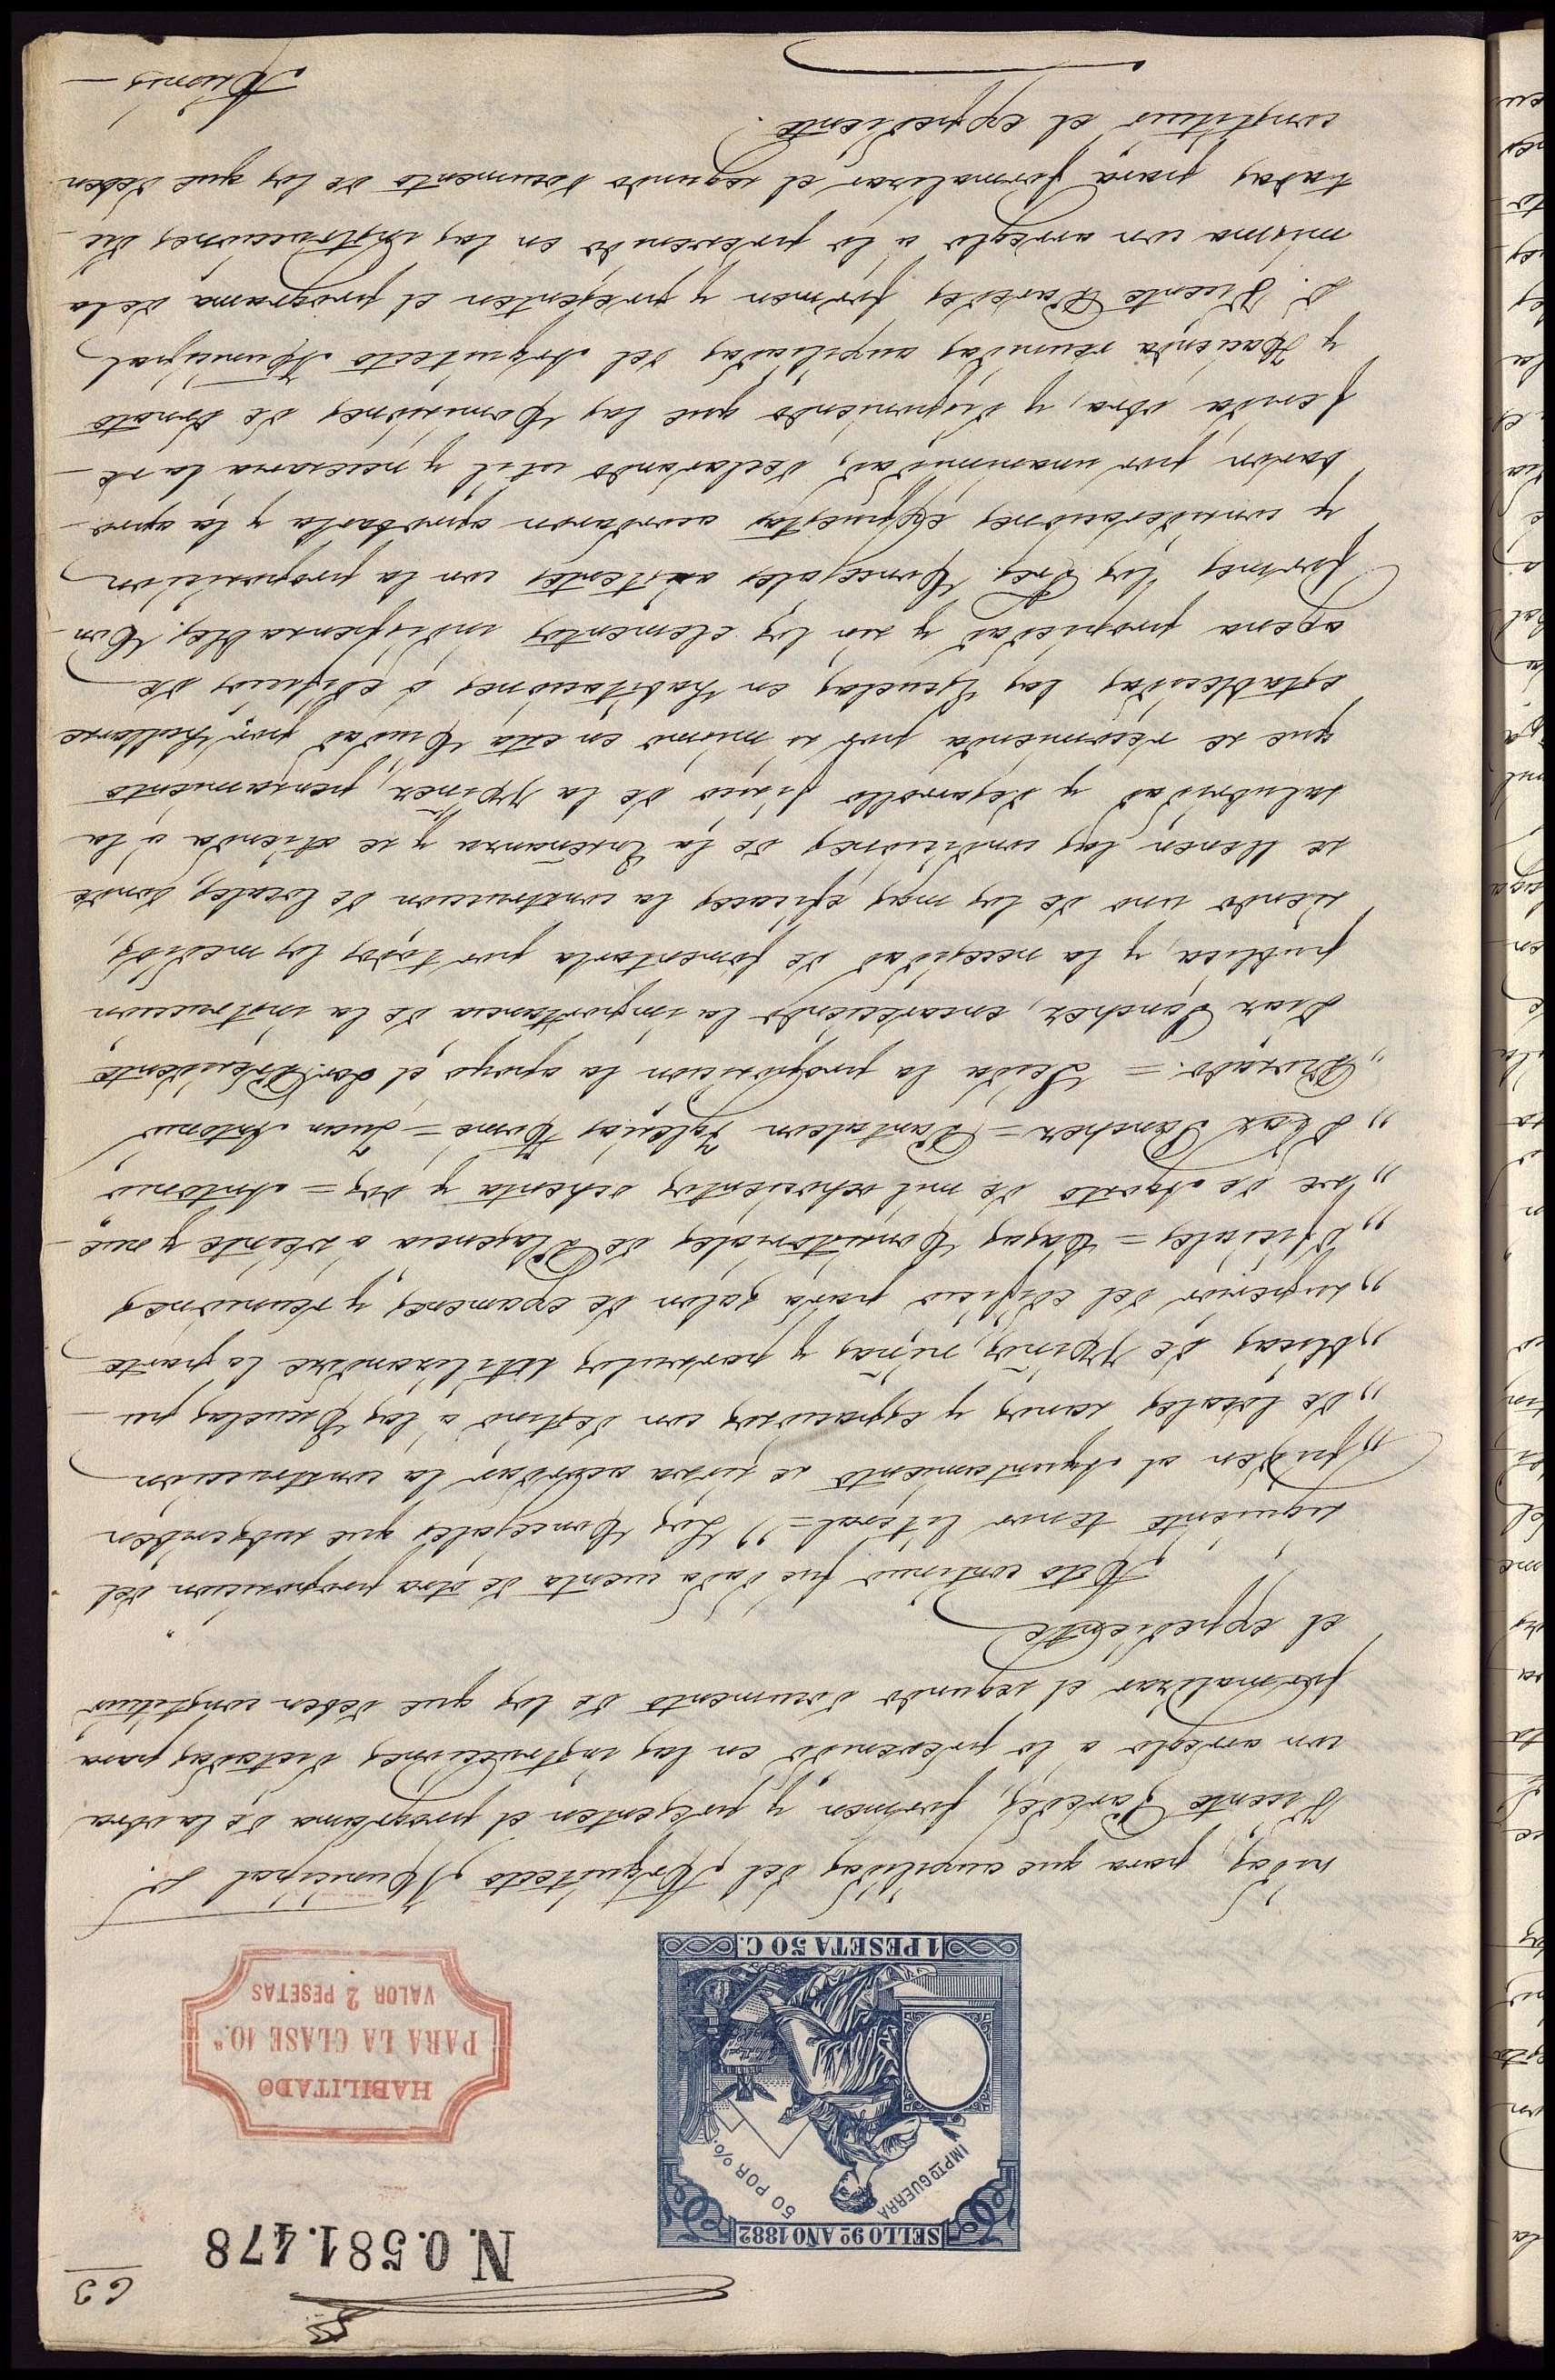 63
N. 0.581.478
SELLO 9º AÑO 1882
IMPTO GUERRA 50 POR %
1 PESETA 50 C.
HABILITADO
PARA LA CLASE 10.ª
VALOR 2 PESETAS
nidas, para que auxiliadas del Arquitecto Municipal D.
Vicente Paredes, formen y presenten el programa de la obra
con arreglo a lo prevenido en las instrucciones dictadas para
formalizar el segundo documento de los que deben constituir
el expediente
Acto continuo fue dada cuenta de otra proposicion del
siguiente tenor literal = "Los Concejales que suscriben
" piden al Ayuntamiento se sirva acordar la construccion
" de locales sanos y espaciosos con destino á las Escuelas pu-
" blicas de niños, niñas y parvulos utilizandose la parte
" superior del edificio para salon de examenes y reuniones
" oficiales = Casas Consistoriales de Plasencia á veinte y nue-
" ve de Agosto de mil ochocientos ochenta y dos = Antonio
" Diaz Sanchez = Pantaleon Yglesias Gomé = Juan Antonio
" Rosado. = Leida la proposicion la apoyó el Sor. Presidente
Diaz Sanchez, encareciendo la importancia de la instruccion
publica, y la necesidad de fomentarla por todos los medios,
siendo uno de los mas eficaces la construccion de locales, donde
se llenen las condiciones de la Enseñanza y se atienda á la
salubridad y desarrollo fisico de la niñez, pensamiento
que se recomienda por si mismo en esta Ciudad por hallarse
establecidas las Escuelas en habitaciones ó edificios de
agena propiedad y sin los elementos indispensables. Con-
formes los Sres. Concejales asistentes con la proposicion
y consideraciones expuestas acordaron aprobarla y la apro-
baron por unanimidad, declarando util y necesaria la re-
ferida obra, y disponiendo que las Comisiones de Ornato
y Hacienda reunidas auxiliadas del Arquitecto Municipal
D. Vicente Paredes formen y presenten el programa de la
misma con arreglo á lo prevenido en las instrucciones dic-
tadas para formalizar el segundo documento de los que deben
constituir el expediente.